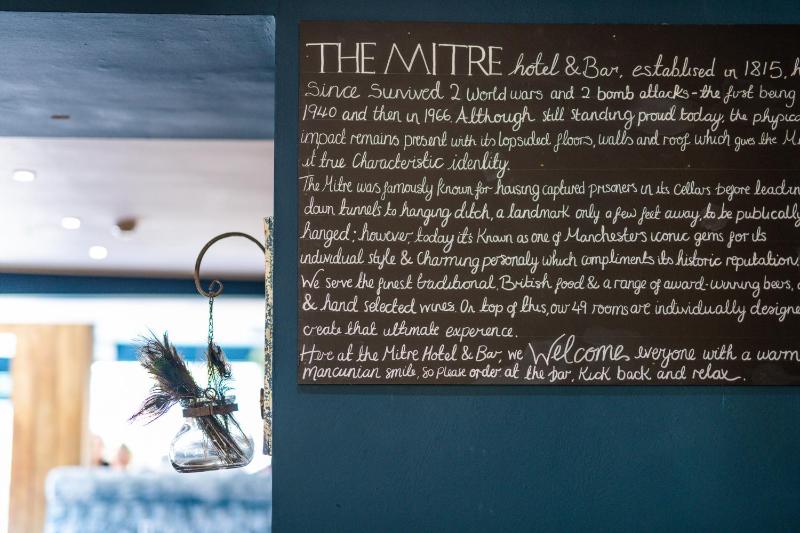 THE MITRE hotel & Bar, establised in 1815,
Since Survived 2 World wars and 2 bomb attacks - the first being
1940 and then in 1966. Although still standing proud today, the physica
impact remains present with its lopsided floors, walls and roof which gives the M
it true Characteristic identity.
The Mitre was famously known for housing captured prisoners in its Cellars before leadin
down tunnels to hanging ditch, a landmark only a few feet away, to be publically
hanged; however, today it's Known as one of Manchesters iconic gems for its
individual style & Charming personaly which compliments its historic reputation.
We serve the finest traditional, British food & a range of award-winning beers,
& hand selected wines. On top of this, our 49 rooms are individually designe
create that ultimate experence.
Here at the Mitre Hotel & Bar, we Welcome everyone with a warm
mancunian smile, so please order at the bar, Kick back and relax.